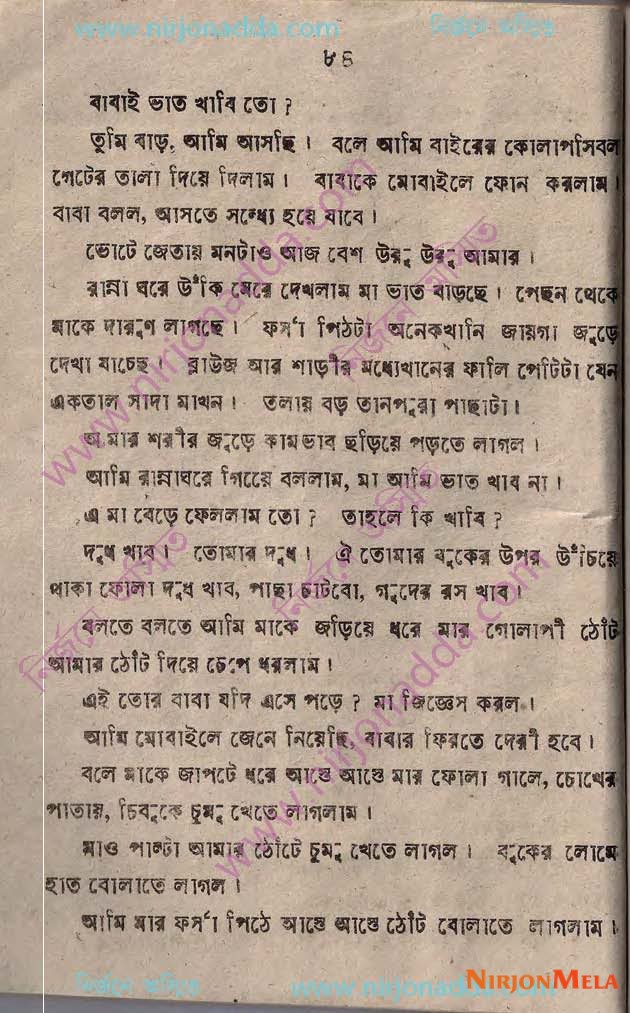 www.nirjonadda.com নির্জনে অসিত
৮৪
বাবাই ভাত খাবি তো ?
তুমি বাড়, আমি আসছি । বলে আমি বাইরের কোলাপসিবল
গেটের তালা দিয়ে দিলাম । বাবাকে মোবাইলে ফোন করলাম ।
বাবা বলল, আসতে সন্ধ্যে হয়ে যাবে ।
ভোটে জেতায় মনটাও আজ বেশ উরু উরু আমার ।
রান্না ঘরে উঁকি মেরে দেখলাম মা ভাত বাড়ছে । পেছন থেকে
মাকে দারুণ লাগছে । ফর্সা পিঠটা অনেকখানি জায়গা জুড়ে
দেখা যাচ্ছে । ব্লাউজ আর শাড়ীর মধ্যেখানের ফালি পেটিটা যেন
একতাল সাদা মাখন । তলায় বড় তানপুরা পাছাটা ।
আমার শরীর জুড়ে কামভাব ছড়িয়ে পড়তে লাগল ।
আমি রান্নাঘরে গিয়েে বললাম, মা আমি ভাত খাব না ।
এ মা বেড়ে ফেললাম তো ? তাহলে কি খাবি ?
দুধ খাব । তোমার দুধ । ঐ তোমার বুকের উপর উঁচিয়ে
থাকা ফোলা দুধ খাব, পাছা চাটবো, গুদের রস খাব ।
বলতে বলতে আমি মাকে জড়িয়ে ধরে মার গোলাপী ঠোঁট
আমার ঠোঁট দিয়ে চেপে ধরলাম ।
এই তোর বাবা যদি এসে পড়ে ? মা জিজ্ঞেস করল ।
আমি মোবাইলে জেনে নিয়েছি, বাবার ফিরতে দেরী হবে ।
বলে মাকে জাপটে ধরে আস্তে আস্তে মার ফোলা গালে, চোখের
পাতায়, চিবুকে চুমু খেতে লাগলাম ।
মাও পাল্টা আমার ঠোঁটে চুমু খেতে লাগল । বুকের লোমে
হাত বোলাতে লাগল ।
আমি মার ফর্সা পিঠে আস্তে আস্তে ঠোঁট বোলাতে লাগলাম ।
নির্জনে অসিত www.nirjonadda.com
NIRJONMELA